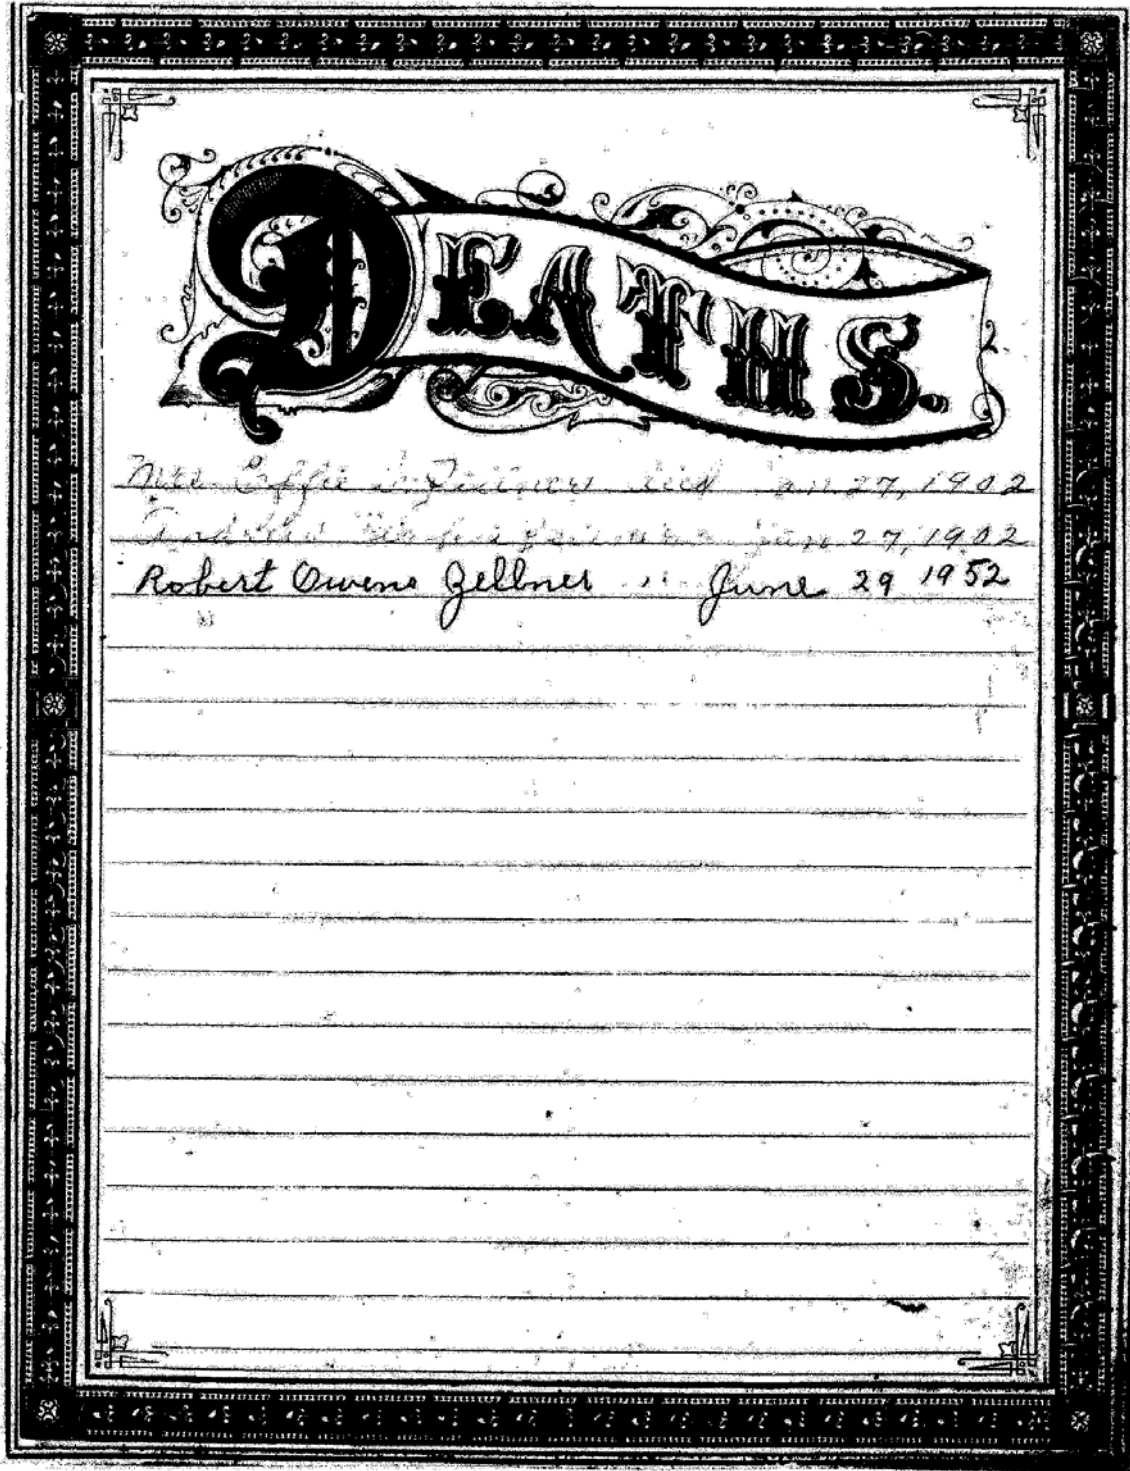 DEATHS.
Mrs Effie died Jan 27, 1902
Jan 27, 1902
Robert Owens Zellner " June 29 1952